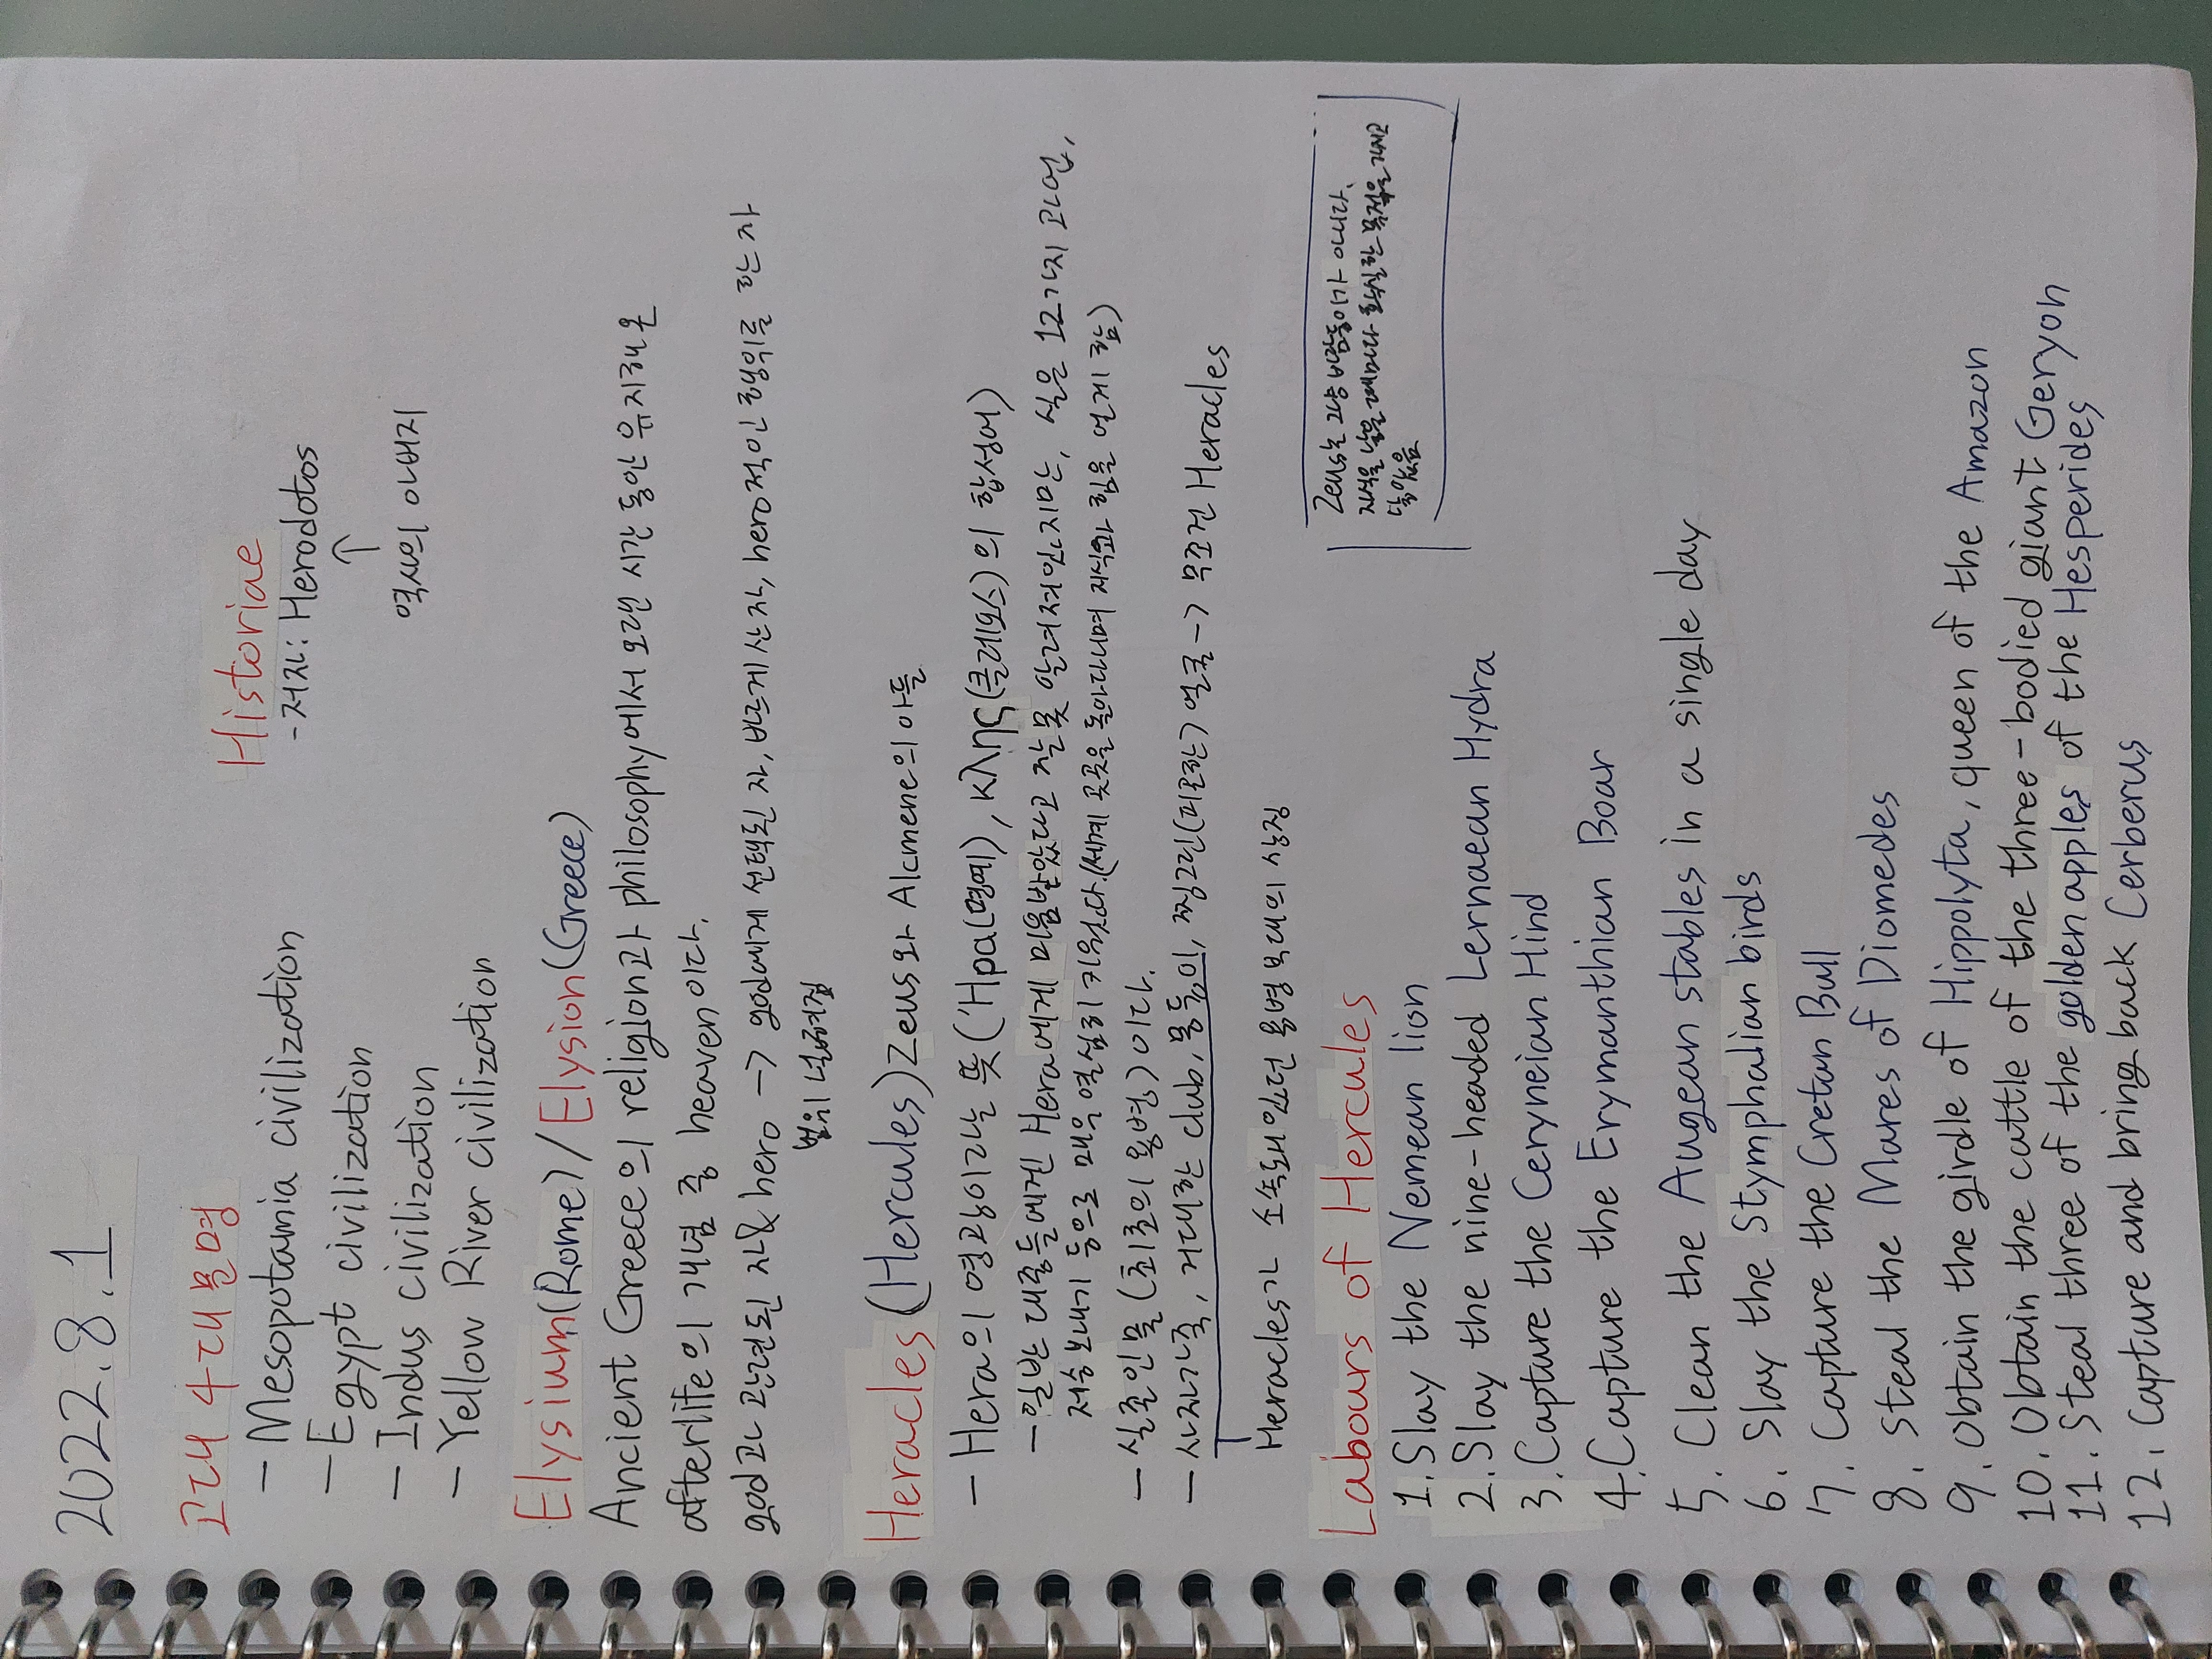 2022.8.1
고대 4대 문명
- Mesopotamia civilization
- Egypt civilization
- Indus civilization
- Yellow River civilization
Historiae
- 저자: Herodotos
↑
역사의 아버지
Elysium(Rome) / Elysion(Greece)
Ancient Greece의 religion과 philosophy에서 오랜 시간 동안 유지해온
afterlife의 개념 중 heaven이다.
god과 관련된 자 & hero -> god에게 선택된 자, 바르게 산 자, hero적인 행위를 한 자
범위 넓어짐
Heracles (Hercules) Zeus와 Alcmene의 아들
- Hera의 영광이라는 뜻 ('Ηρα(명예), κλης(클레오스)의 합성어)
- 일반 대중들에겐 Hera에게 미움받았다고 잘못 알려져있지만, 실은 12가지 과업,
저승 보내기 등으로 매우 열심히 키웠다.(세계 곳곳을 돌아다니며 지식과 힘을 얻게 함)
- 실존인물 (최초의 용병) 이다.
- 사자가죽, 거대한 club, 몽둥이, 찡그린(피곤한) 얼굴 -> 무조건 Heracles
Heracles가 소속돼있던 용병부대의 상징
Zeus는 그냥 바람둥이가 아니다.
자식을 낳을 때마다 확실한 목적을 가지고
낳았음
Labours of Hercules
1. Slay the Nemean lion
2. Slay the nine-headed Lernaean Hydra
3. Capture the Ceryneian Hind
4. Capture the Erymanthian Boar
5. Clean the Augean stables in a single day
6. Slay the Stymphalian birds
7. Capture the Cretan Bull
8. Steal the Mares of Diomedes
9. Obtain the girdle of Hippolyta, queen of the Amazon
10. Obtain the cattle of the three-bodied giant Geryon
11. Steal three of the golden apples of the Hesperides
12. Capture and bring back Cerberus